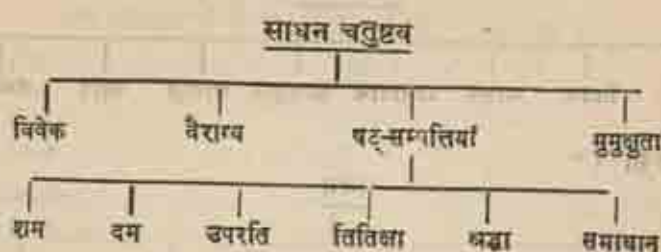 साधन चतुष्टय
विवेक वैराग्य षट्-सम्पत्तियां मुमुक्षुता
शम दम उपरति तितिक्षा श्रद्धा समाधान